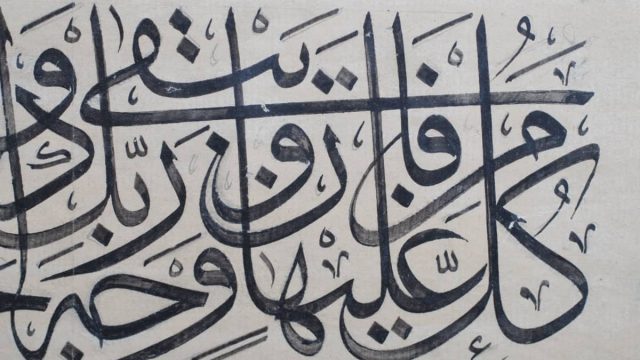 كُلُّ مَنْ عَلَيْهَا فَانٍ وَيَبْقَى وَجْهُ رَبِّكَ ذُو